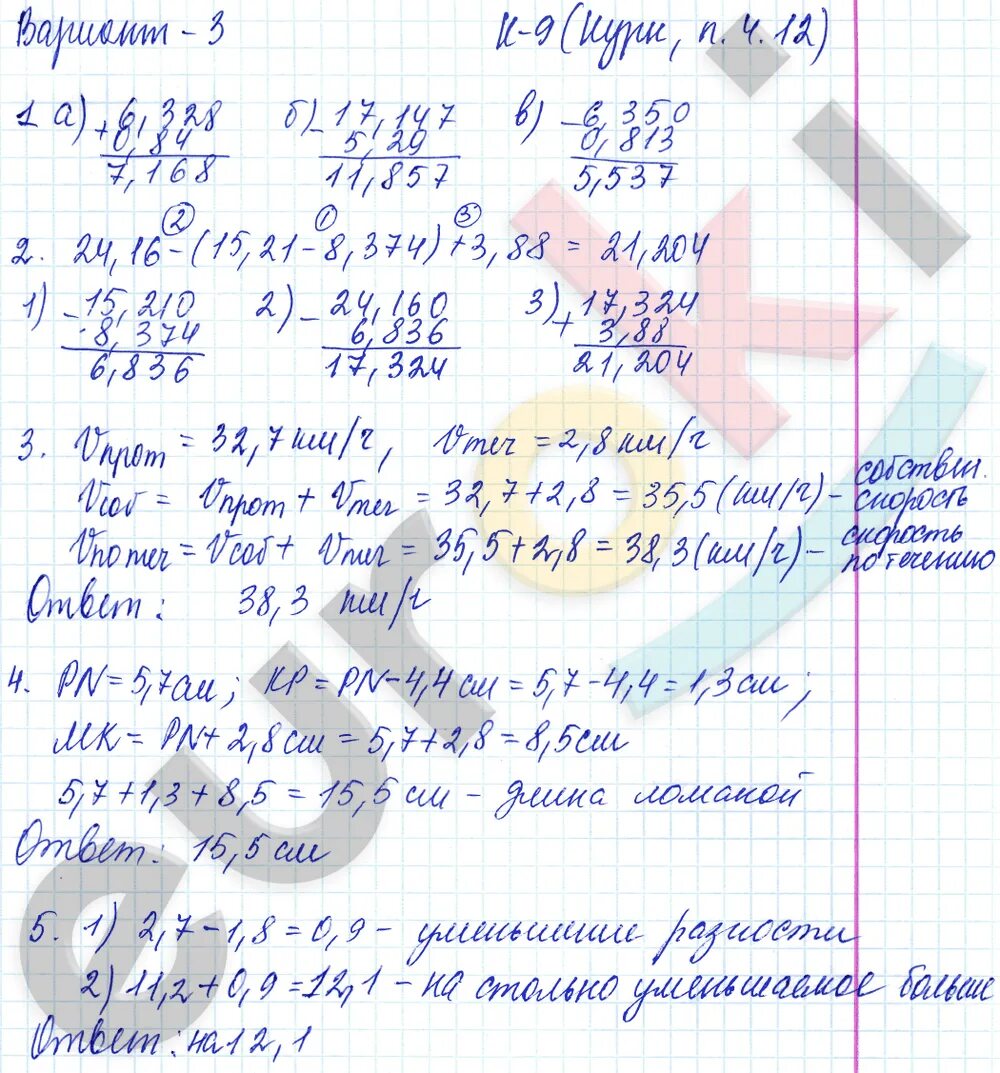 Вариант - 3 К-9 (Нурк, п. 4.12)
1 а) + 6,328 б) - 17,147 в) - 6,350
0,84 5,29 0,813
7,168 11,857 5,537
2 1 3
2. 24,16 - (15,21 - 8,374) + 3,88 = 21,204
1) - 15,210 2) - 24,160 3) + 17,324
8,374 6,836 3,88
6,836 17,324 21,204
3. Vпрот = 32,7 км/ч, Vтеч = 2,8 км/ч
Vсоб = Vпрот + Vтеч = 32,7 + 2,8 = 35,5 (км/ч) - собствен. скорость
Vпо теч = Vсоб + Vтеч = 35,5 + 2,8 = 38,3 (км/ч) - скорость по течению
Ответ: 38,3 км/ч
4. PN = 5,7 см; KP = PN - 4,4 см = 5,7 - 4,4 = 1,3 см;
MK = PN + 2,8 см = 5,7 + 2,8 = 8,5 см
5,7 + 1,3 + 8,5 = 15,5 см - длина ломаной
Ответ: 15,5 см
5. 1) 2,7 - 1,8 = 0,9 - уменьшение разности
2) 11,2 + 0,9 = 12,1 - на столько уменьшаемое больше
Ответ: на 12,1
euroki